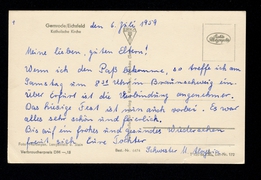 Gernrode/Eichsfeld
Katholische Kirche
den 6. Juli 1959
Echte Photographie
Meine lieben, guten Eltern!
Wenn ich den Paß bekomme, so treffe ich am
Samstag um 8 Uhr in Braunschweig ein
über Erfurt ist die Verbindung angenehmer.
Das hiesige Fest ist nun auch vorbei. Es war
alles sehr schön und feierlich.
Bis auf ein frohes und gesundes Wiedersehen
freut sich Eure Tochter
Schwester M.